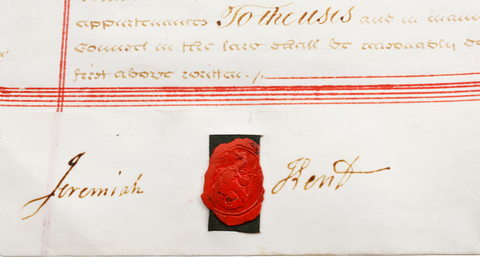 appurtenances To the uses and in man
Counsel in the law shall be reasonably
first above written.
Jeremiah Kent